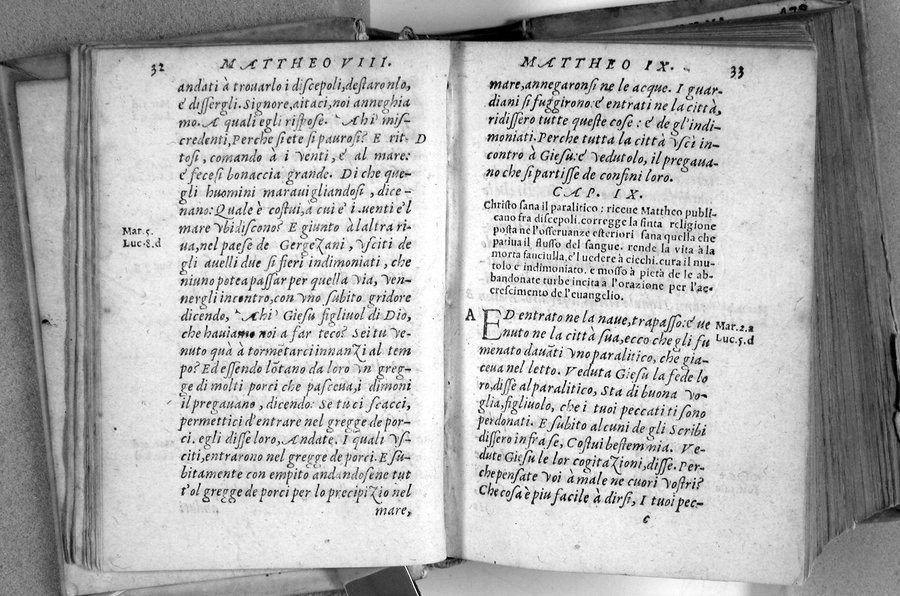 32
MATTHEO VIII.
andati à trouarlo i discepoli, destaronlo,
é dissergli. Signore, aitaci, noi anneghia
mo. A quali egli rispose. Ahi mis-
credenti, Perche siete si paurosi? E rit-
tosi, comando à i venti, é al mare:
é fecesi bonaccia grande. Di che que-
gli huomini marauigliandosi, dice-
nano: Quale è costui, a cui è i venti e'l
mare vbidiscono? E giunto à l'altra ri-
ua, nel paese de Gergezani, vsciti de
gli auelli due si fieri indimoniati, che
niuno potea passar per quella via, ven-
nergli incontro, con vno subito gridore
dicendo, Ahi Giesu figliuol di Dio,
che hauiamo noi a far teco? Sei tu ve-
nuto quà à tormētarci innanzi al tem
po? Ed essendo lōtano da loro vn greg-
ge di molti porci che pasceua, i dimoni
il pregauano, dicendo: Se tu ci scacci,
permettici d'entrare nel gregge de por-
ci. egli disse loro, Andate. I quali vs-
citi, entrarono nel gregge de porci. E su-
bitamente con empito andandosene tut
t'ol gregge de porci per lo precipizio nel
mare,
D
Mar. 5.
Luc. 8. d
MATTHEO IX.
33
mare, annegaronsi ne le acque. I guar-
diani si fuggirono: é entrati ne la città,
ridissero tutte queste cose: é de gl'indi-
moniati. Perche tutta la città vsci in-
contro à Giesu: é vedutolo, il pregaua-
no che si partisse de confini loro.
CAP. IX.
Christo sana il paralitico: riceue Mattheo publi-
cano fra discepoli. corregge la finta religione
posta ne l'osseruanze esteriori sana quella che
patiua il flusso del sangue. rende la vita à la
morta fanciulla, e'l uedere à ciechi. cura il mu-
tolo e indimoniato. e mosso à pietà de le ab-
bandonate turbe incita à l'orazione per l'ac-
crescimento de l'euangelio.
A
ED entrato ne la naue, trapasso: é ue
nuto ne la città sua, ecco che gli fu
menato dauāti vno paralitico, che gia-
ceua nel letto. Veduta Giesu la fede lo
ro, disse al paralitico, Sta di buona vo-
glia, figliuolo, che i tuoi peccati ti sono
perdonati. E subito alcuni de gli Scribi
dissero infra se, Costui bestemmia. Ve-
dute Giesu le lor cogitazioni, disse. Per-
che pensate voi à male ne cuori vostri?
Che cosa è piu facile à dirsi, I tuoi pec-
c
Mar. 2. a
Luc. 5. d